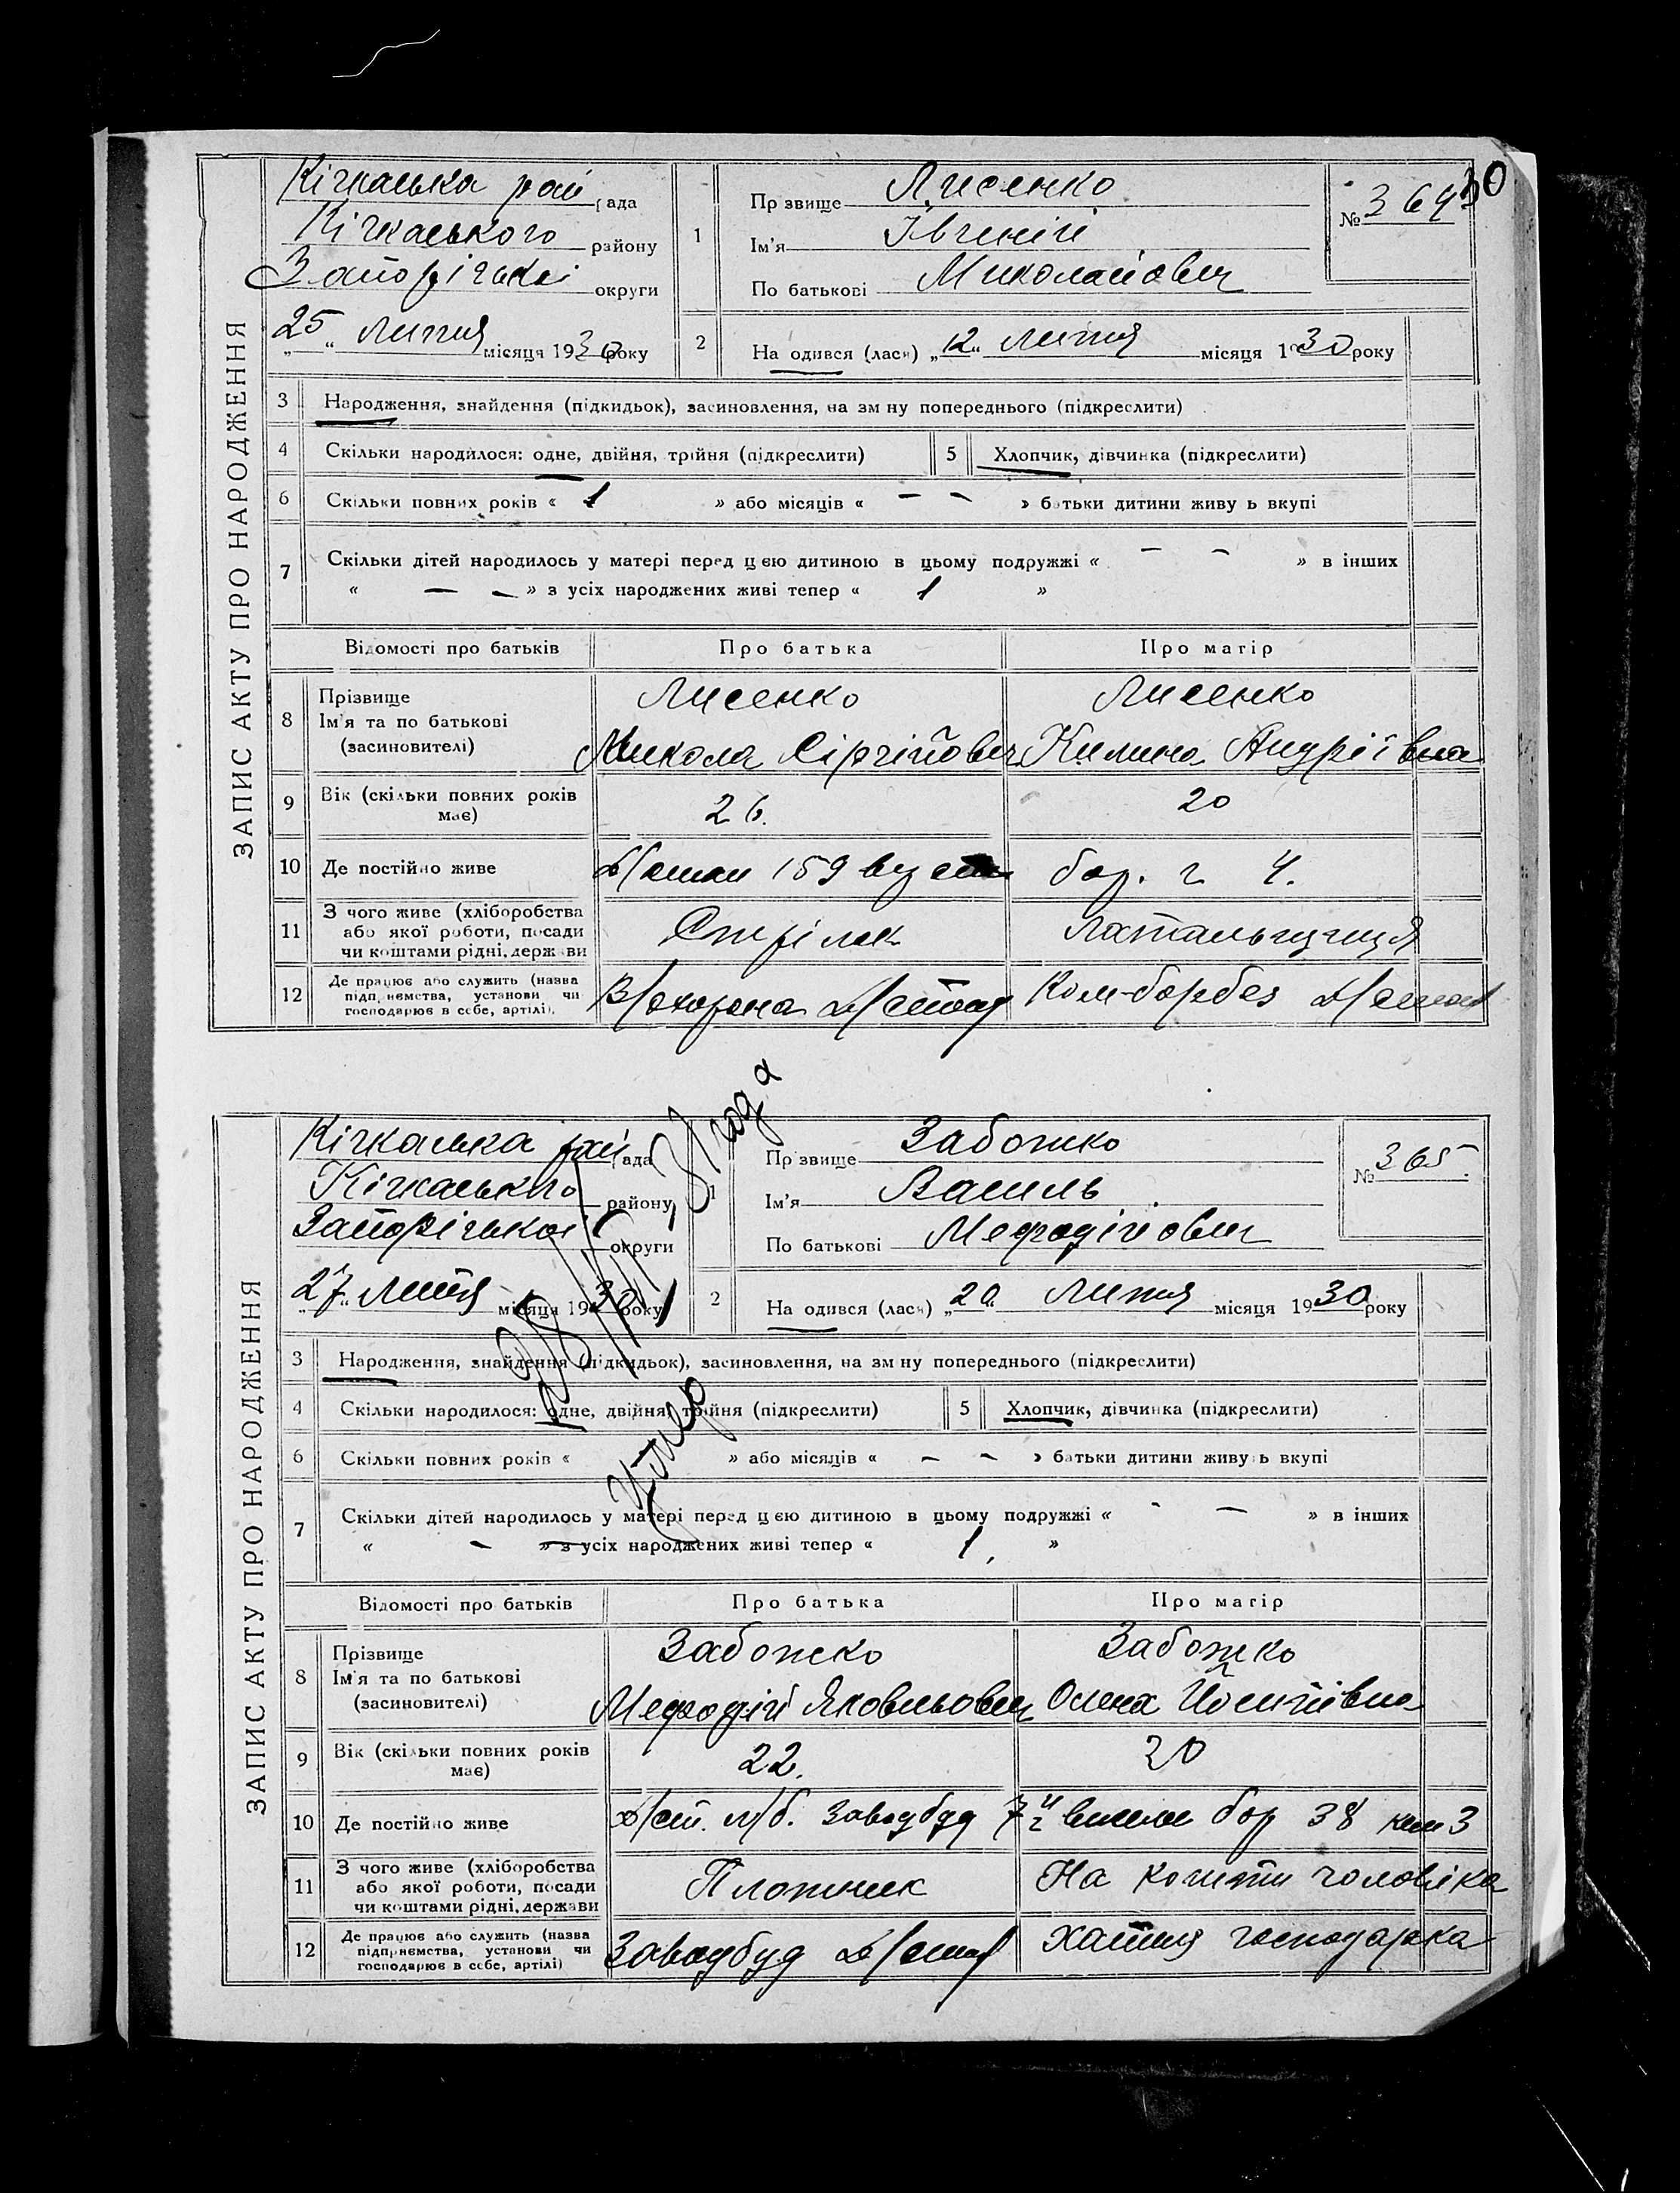 30
ЗАПИС АКТУ ПРО НАРОДЖЕННЯ
Кічкаська рай рада
Кічкаського району
Запорізької округи
„25“ липня місяця 1930 року
1
Прізвище Лисенко
Ім'я Івгеній
По батькові Миколайович
№ 364
2
Народився (лася) „12“ липня місяця 1930 року
3 Народження, знайдення (підкидьок), засиновлення, на зміну попереднього (підкреслити)
4 Скільки народилося: одне, двійня, трійня (підкреслити) 5 Хлопчик, дівчинка (підкреслити)
6 Скільки повних років « 1 » або місяців « – – » батьки дитини живуть вкупі
7 Скільки дітей народилось у матері перед цією дитиною в цьому подружжі « – – » в інших
« – – » з усіх народжених живі тепер « 1 »
Відомості про батьків Про батька Про матір
8 Прізвище Лисенко Лисенко
Ім'я та по батькові
(засиновителі) Микола Сіргійович Килина Андріївна
9 Вік (скільки повних років має) 26. 20
10 Де постійно живе 159 бар. 4.
11 З чого живе (хліборобства
або якої роботи, посади
чи коштами рідні, держави Стрілок
12 Де працює або служить (назва
підприємства, установи чи
господарює в себе, артілі). В/охорона
ЗАПИС АКТУ ПРО НАРОДЖЕННЯ
Кічкаська рай рада
Кічкаського району
Запорізької округи
„27“ липня місяця 1930 року
1
Прізвище Забожко
Ім'я Василь
По батькові Мефодійович
№ 365.
2
Народився (лася) „20“ Липня місяця 1930 року
Умер
3 Народження, знайдення (підкидьок), засиновлення, на зміну попереднього (підкреслити)
4 Скільки народилося: одне, двійня, трійня (підкреслити) 5 Хлопчик, дівчинка (підкреслити)
6 Скільки повних років « » або місяців « – – » батьки дитини живуть вкупі
7 Скільки дітей народилось у матері перед цією дитиною в цьому подружжі « – – » в інших
« – – » з усіх народжених живі тепер « 1 »
Відомості про батьків Про батька Про матір
8 Прізвище Забожко Забожко
Ім'я та по батькові
(засиновителі) Мефодій Яковльович Олена Йосипівна
9 Вік (скільки повних років має) 22. 20
10 Де постійно живе Заводбуд бар 38 ким 3
11 З чого живе (хліборобства
або якої роботи, посади
чи коштами рідні, держави Плотник На кошти чоловіка
12 Де працює або служить (назва
підприємства, установи чи
господарює в себе, артілі) Заводбуд Хатня господарка